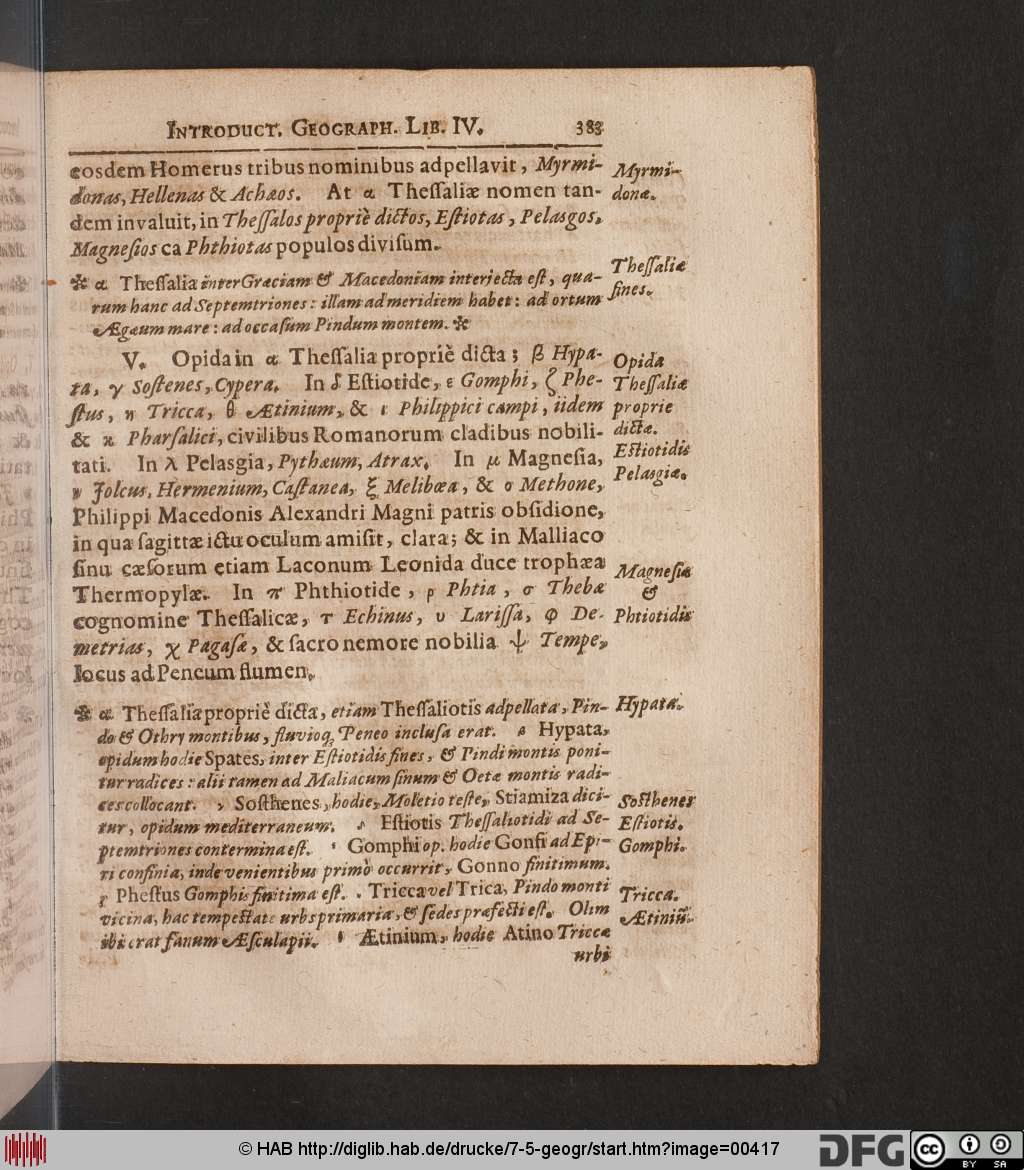 INTRODUCT. GEOGRAPH. LIB. IV. 383
eosdem Homerus tribus nominibus adpellavit, Myrmi-
donas, Hellenas & Achæos. At α Theſſaliæ nomen tan-
dem invaluit, in Theſſalos propriè dictos, Eſtiotas, Pelasgos,
Magneſios ca Phthiotas populos diviſum.
Myrmi-
donæ.
* α Theſſalia inter Græciam & Macedoniam interjecta eſt, qua-
rum hanc ad Septemtriones: illam ad meridiem habet: ad ortum
Ægæum mare: ad occaſum Pindum montem. *
Theſſaliæ
fines.
V. Opida in α Theſſalia propriè dicta; β Hypa-
ta, γ Soſtenes, Cypera. In δ Eſtiotide, ε Gomphi, ζ Phe-
ſtus, η Tricca, θ Ætinium, & ι Philippici campi, iidem
& κ Pharſalici, civilibus Romanorum cladibus nobili-
tati. In λ Pelasgia, Pythæum, Atrax. In μ Magneſia,
ν Jolcus, Hermenium, Caſtanea, ξ Melibœa, & ο Methone,
Philippi Macedonis Alexandri Magni patris obſidione,
in qua ſagittæ ictu oculum amiſit, clara; & in Malliaco
ſinu cæſorum etiam Laconum Leonida duce trophæa
Thermopylæ. In π Phthiotide, ρ Phtia, σ Thebæ
cognomine Theſſalicæ, τ Echinus, υ Lariſſa, φ De-
metrias, χ Pagaſæ, & ſacro nemore nobilia ψ Tempe,
locus ad Peneum flumen.
Opida
Theſſaliæ
proprie
dictæ.
Eſtiotidis
Pelasgiæ.
Magneſiæ
&
Phtiotidis
* α Theſſalia propriè dicta, etiam Theſſaliotis adpellata, Pin-
do & Othry montibus, fluvioq; Peneo incluſa erat. β Hypata,
opidum hodie Spates, inter Eſtiotidis fines, & Pindi montis poni-
tur radices: alii tamen ad Maliacum ſinum & Oetæ montis radi-
ces collocant. γ Soſthenes, hodie, Moletio teſte, Stiamiza dici-
tur, opidum mediterraneum. δ Eſtiotis Theſſaliotidi ad Se-
ptemtriones contermina eſt. ε Gomphi op. hodie Gonfi ad Epi-
ri confinia, inde venientibus primò occurrit, Gonno finitimum.
ζ Pheſtus Gomphis finitima eſt. η Tricca vel Trica, Pindo monti
vicina, hac tempeſtate urbs primaria, & ſedes præfecti eſt. Olim
ibi erat fanum Æſculapii. θ Ætinium, hodie Atino Triccæ
urbi
Hypata.
Soſthenes
Eſtiotis.
Gomphi.
Tricca.
Ætiniū.
© HAB http://diglib.hab.de/drucke/7-5-geogr/start.htm?image=00417
DFG
cc
BY SA